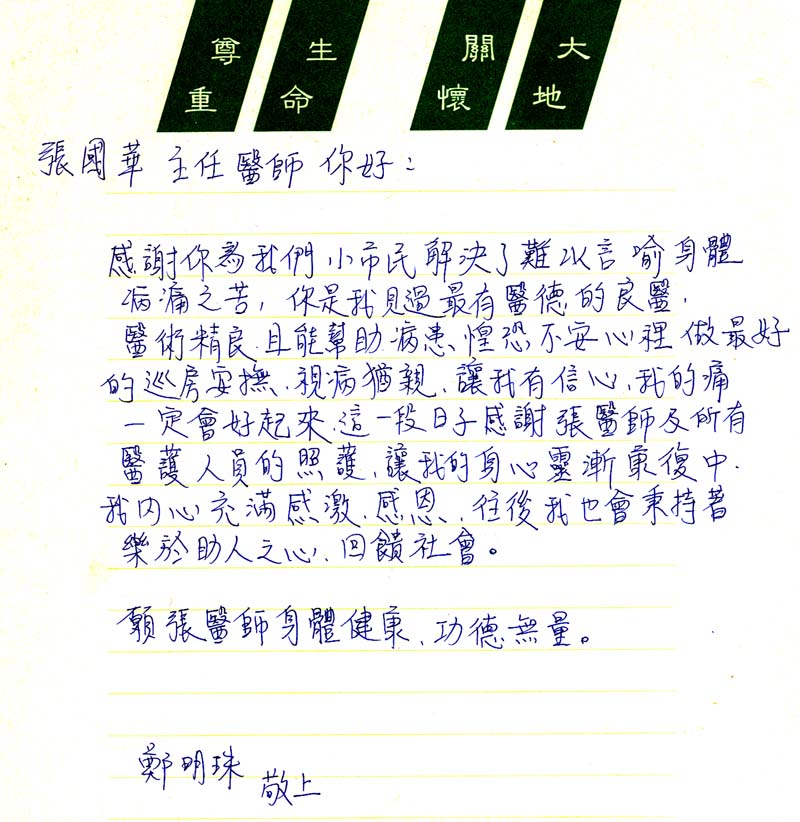 尊重 生命 關懷 大地
張國華 主任醫師 你好：
感謝你為我們小市民解決了難以言喻身體
病痛之苦，你是我見過最有醫德的良醫，
醫術精良、且能幫助病患、惶恐不安心裡 做最好
的巡房安撫、視病猶親、讓我有信心、我的痛
一定會好起來、這一段日子感謝張醫師及所有
醫護人員的照護、讓我的身心靈漸康復中、
我内心充滿感激、感恩、往後我也會秉持著
樂於助人之心、回饋社會。
願張醫師身體健康、功德無量。
鄭明珠 敬上